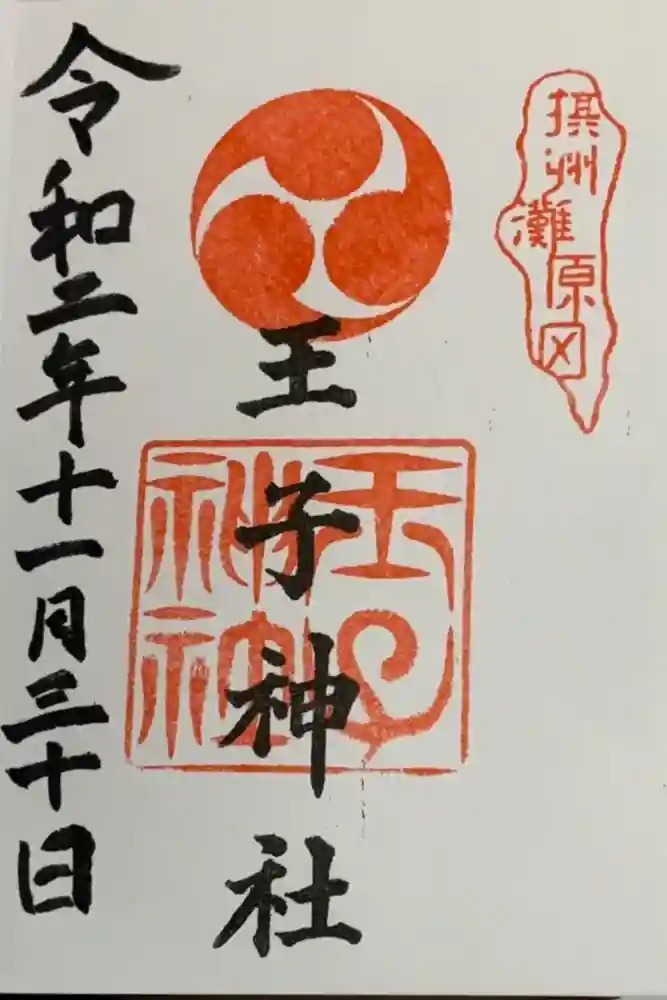 摂州
灘
原田
王子神社
王子
神社
令和二年十一月三十日